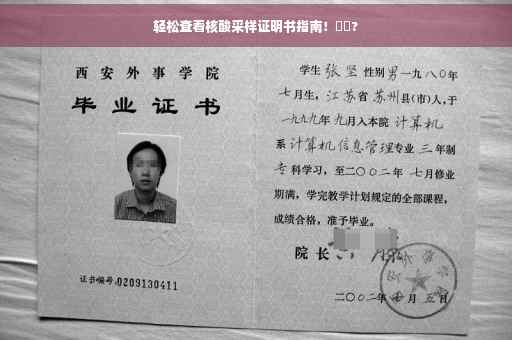 轻松查看核酸采样证明书指南！▯▯?
西安外事学院
毕业证书
证书编号:0209130411
学生 张坚 性别男一九八〇年
七月生，江苏省苏州县(市)人,于
一九九九年九月入本院 计算机
系计算机信息管理专业 三 年制
专科学习，至二〇〇二年 七月修业
期满，学完教学计划规定的全部课程，
成绩合格，准予毕业。
院长
二〇〇二年 月 五日